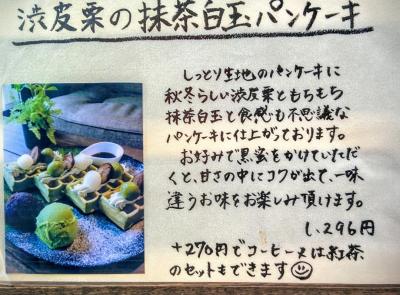 渋皮栗の抹茶白玉パンケーキ
しっとり生地のパンケーキに
秋冬らしい渋皮栗ともちもち
抹茶白玉と食感も不思議な
パンケーキに仕上がっております。
お好みで黒蜜をかけていただ
くと、甘さの中にコクが出て、一味
違うお味をお楽しみ頂けます。
1,296円
+270円でコーヒー又は紅茶
のセットもできます☺